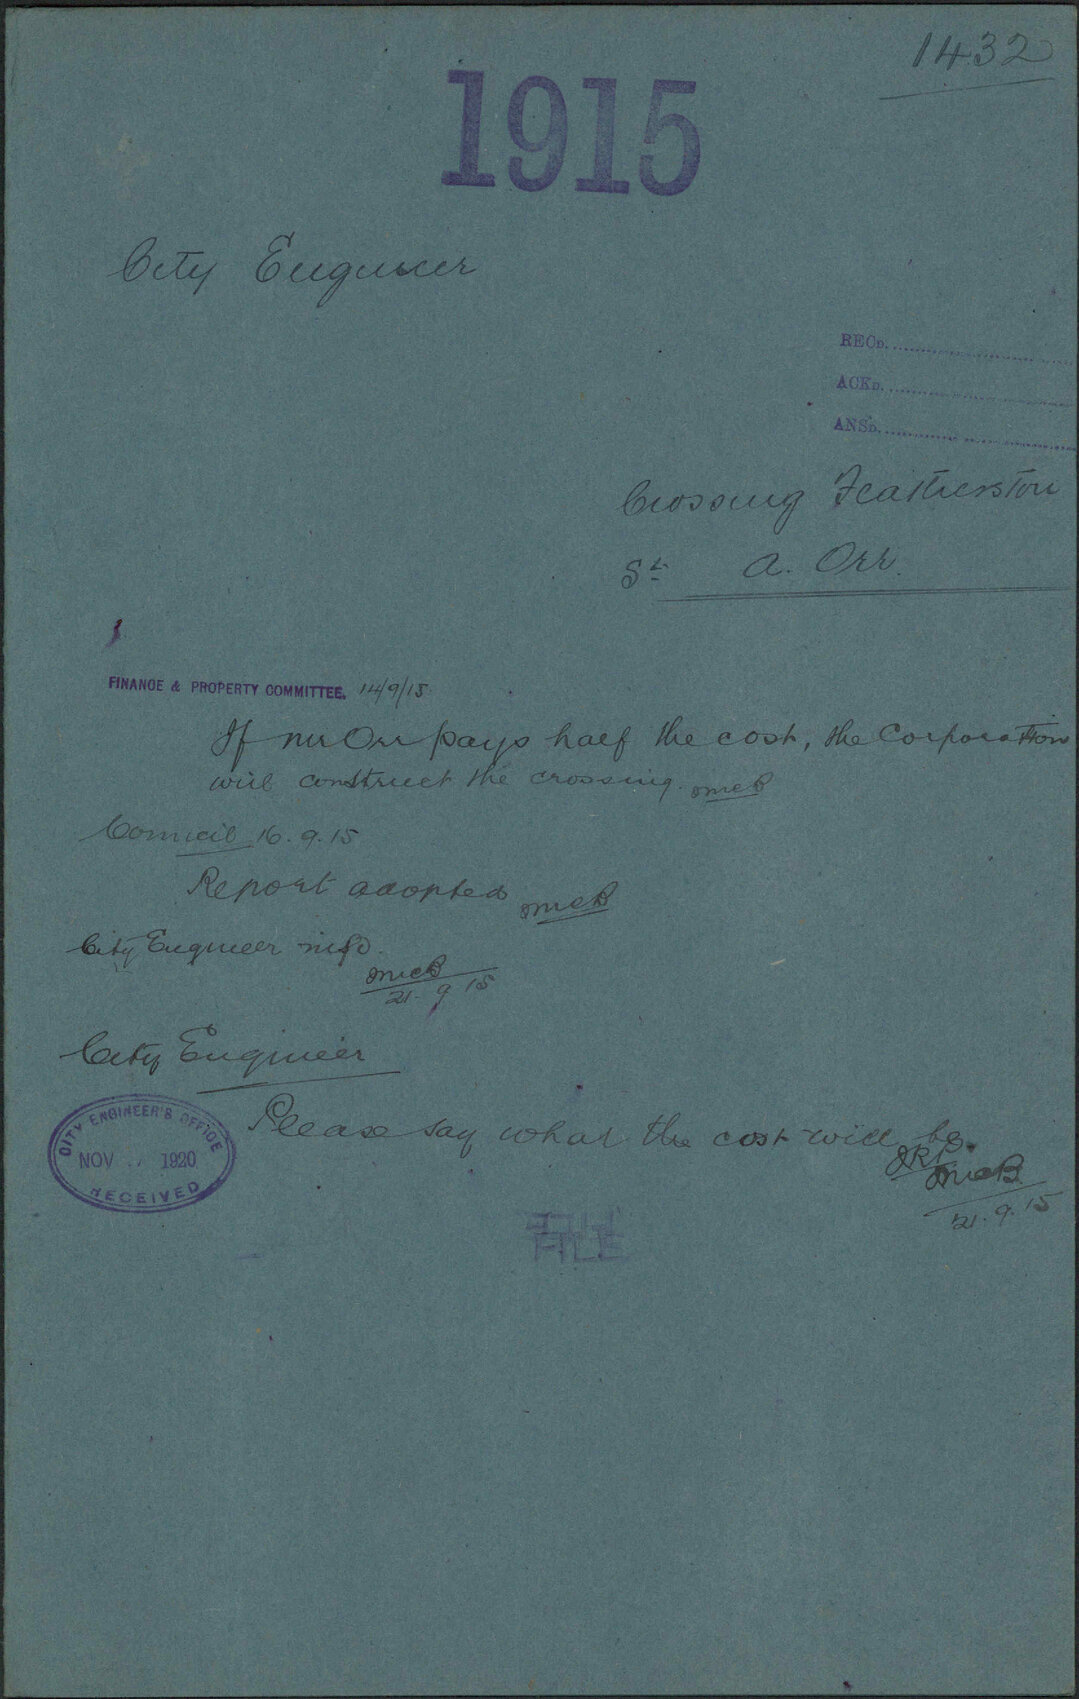 1432
1915
City Engineer
RECD.
ACKD.
ANSD.
Crossing Featherston
St A. Orr.
FINANCE & PROPERTY COMMITTEE. 14/9/15
If Mr Orr pays half the cost, the Corporation
will construct the crossing.
Council 16.9.15
Report adopted
City Engineer
21.9.15
City Engineer
Please say what the cost will be.
21.9.15
CITY ENGINEER'S OFFICE
NOV 1920
RECEIVED
FILE